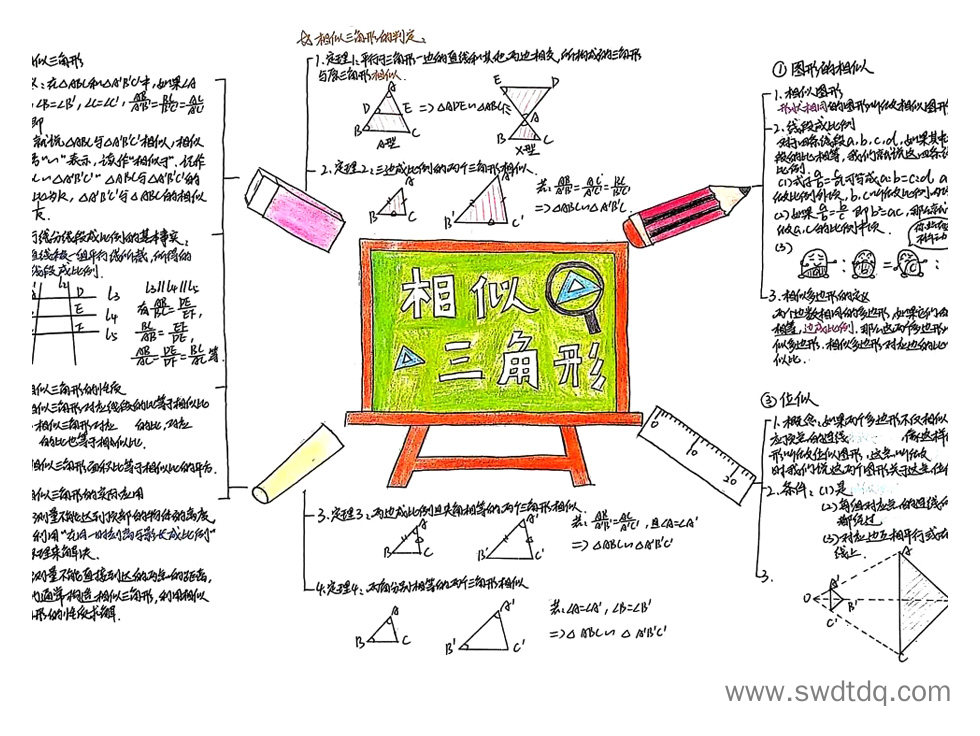 相似三角形的判定:
1.定理1:平行于三角形一边的直线和其他两边相交,所构成的三角形
与原三角形相似.
A
D E
B C
A型
=> △ADE∽△ABC
E D
A
B C
X型
2.定理2:三边成比例的两个三角形相似
A
B C
A'
B' C'
若: AB/A'B' = AC/A'C' = BC/B'C'
=> △ABC∽△A'B'C'
相似
三角形
10
20
3.定理3:两边成比例且夹角相等的两个三角形相似.
A
B C
A'
B' C'
若: AB/A'B' = AC/A'C', 且∠A=∠A'
=> △ABC∽△A'B'C'
4.定理4:两角分别相等的两个三角形相似
A
B C
A'
B' C'
若:∠A=∠A', ∠B=∠B'
=> △ABC∽△A'B'C'
似三角形
:在△ABC和△A'B'C'中,如果∠A
∠B=∠B', ∠C=∠C', AB/A'B' = BC/B'C' = AC/A'C'
即
就说△ABC与△A'B'C'相似,相似
"∽"表示,读作"相似于".
△A'B'C' △ABC与△A'B'C'的
比为k, △A'B'C'与△ABC的相似
分线段成比例的基本事实:
一组平行线所截,所得的
线段成比例.
l₂
D l₃
E l₄
F l₅
l₃∥l₄∥l₅
有 AB/BC = DE/EF,
BC/AB = EF/DE,
AB/AC = DE/DF = 等.
似三角形的性质
似三角形对应线段的比等于相似比
相似三角形对应 的比,对应
的比也等于相似比.
相似三角形面积比等于相似比的平方.
似三角形的实际应用
测量不能达到顶部的物体的高度,
利用"在同一时刻物高与影长成比例"
原理来解决.
测量不能直接到达的两点的距离,
通常构造相似三角形,利用相似
形的性质求解.
① 图形的相似
1.相似图形
形状相同的图形叫做相似图形
2.线段成比例
对于四条线段a,b,c,d,如果其中
段的比相等,我们就说这四条
比例.
a:b=c:d
(2)如果 a/b = b/c 即b²=ac,那么
做a,c的比例中项.
(3)
a : b = c :
3.相似多边形的定义
两个边数相同的多边形,如果它们的
相等,边成比例.那么这两个多边形
似多边形.相似多边形对应边的比
似比.
③ 位似
1.概念:如果两个多边形不仅相似
应顶点的连线 像这样
形叫做位似图形,这点叫做
时我们说这两个图形关于这点位
2.条件:(1)是
(2)每组对应点的连线
都经过
(3)对应边互相平行或在
线上.
3.
A
A'
O B'
C'
C
www.swdtdq.com